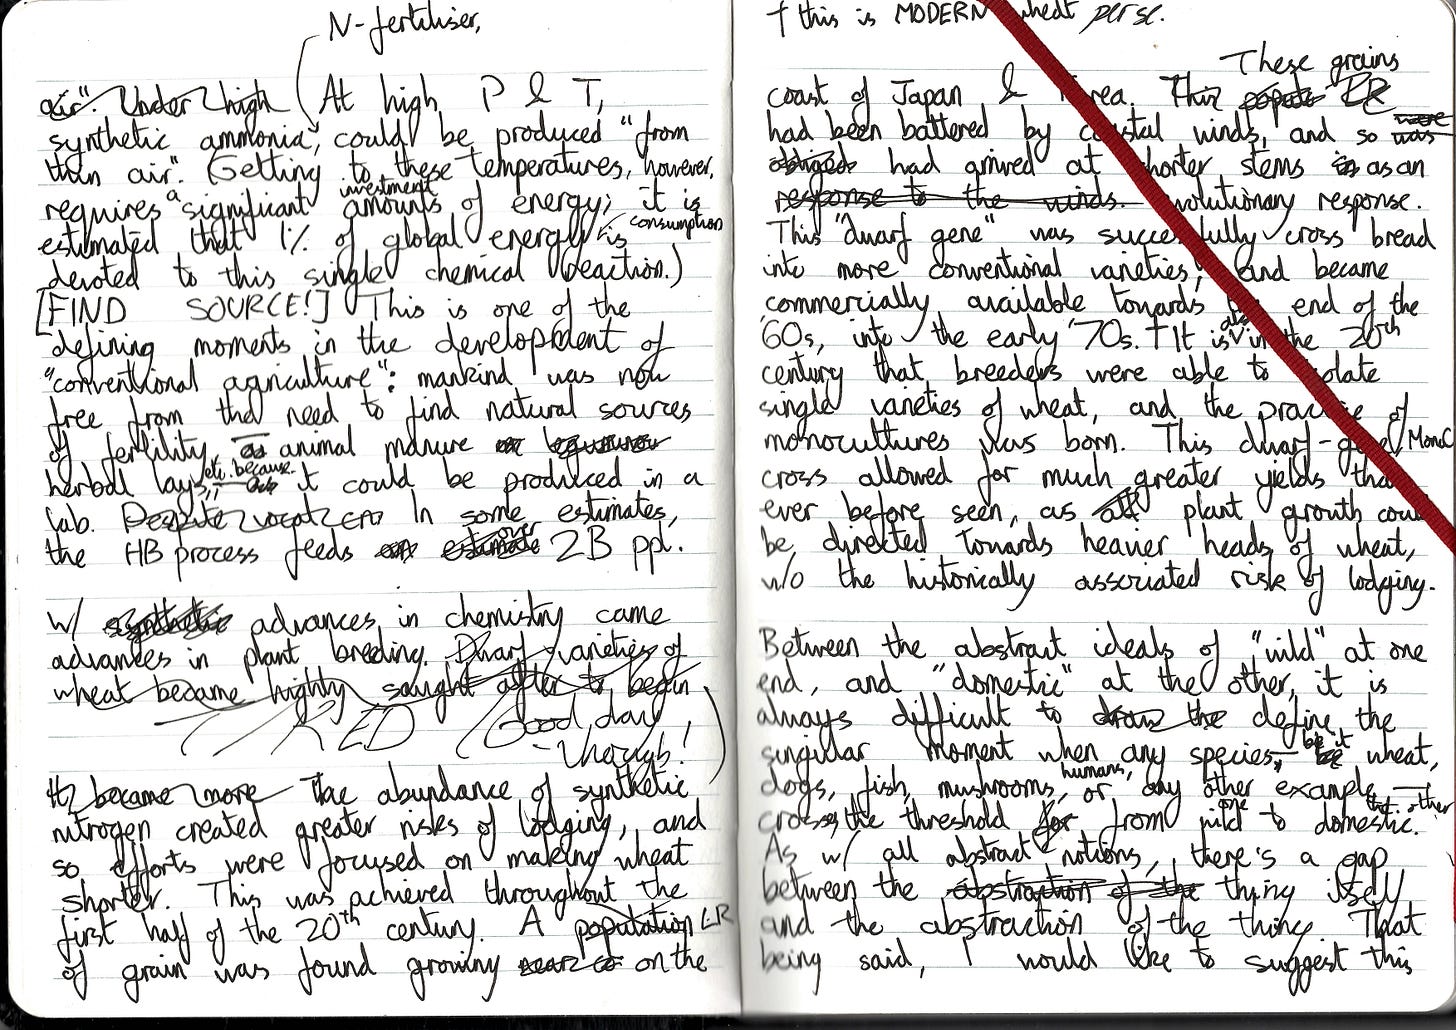 N-fertiliser,
air". Under high At high P & T,
synthetic ammonia, could be produced "from
thin air". (Getting to these temperatures, however,
requires a significant investment amounts of energy; it is
estimated that 1% of global energy consumption is
devoted to this single chemical reaction.)
[FIND SOURCE!] This is one of the
defining moments in the development of
"conventional agriculture": mankind was now
free from the need to find natural sources
of fertility as animal manure or legumes
herbal lays, etc. because it could be produced in a
lab. Despite In some estimates,
the HB process feeds over estimate 2B ppl.
w/ synthetic advances in chemistry came
advances in plant breeding. Dwarf varieties of
wheat became highly sought after to begin
TIRED (Good day,
though!)
It became more The abundance of synthetic
nitrogen created greater risks of lodging, and
so efforts were focused on making wheat
shorter. This was achieved throughout the
first half of the 20th century. A population LR
of grain was found growing near co on the
† this is MODERN wheat per se.
These grains
coast of Japan & Korea. This LR
had been battered by coastal winds, and so were was
obliged had arrived at shorter stems in as an
response to the winds. evolutionary response.
This "dwarf gene" was successfully cross bread
into more conventional varieties, and became
commercially available towards the end of the
'60s, into the early '70s. † It is also in the 20th
century that breeders were able to isolate
single varieties of wheat, and the practice of
monocultures was born. This dwarf-gene
cross allowed for much greater yields than
ever before seen, as all plant growth could
be directed towards heavier heads of wheat,
w/o the historically associated risk of lodging.
Between the abstract ideals of "wild" at one
end, and "domestic" at the other, it is
always difficult to draw the define the
singular moment when any species, be it wheat,
dogs, fish, mushrooms, humans, or any other example –
crosses the threshold for from one wild to domestic. the other
As w/ all abstract notions, there's a gap
between the abstraction of the thing itself
and the abstraction of the thing. That
being said, I would like to suggest this